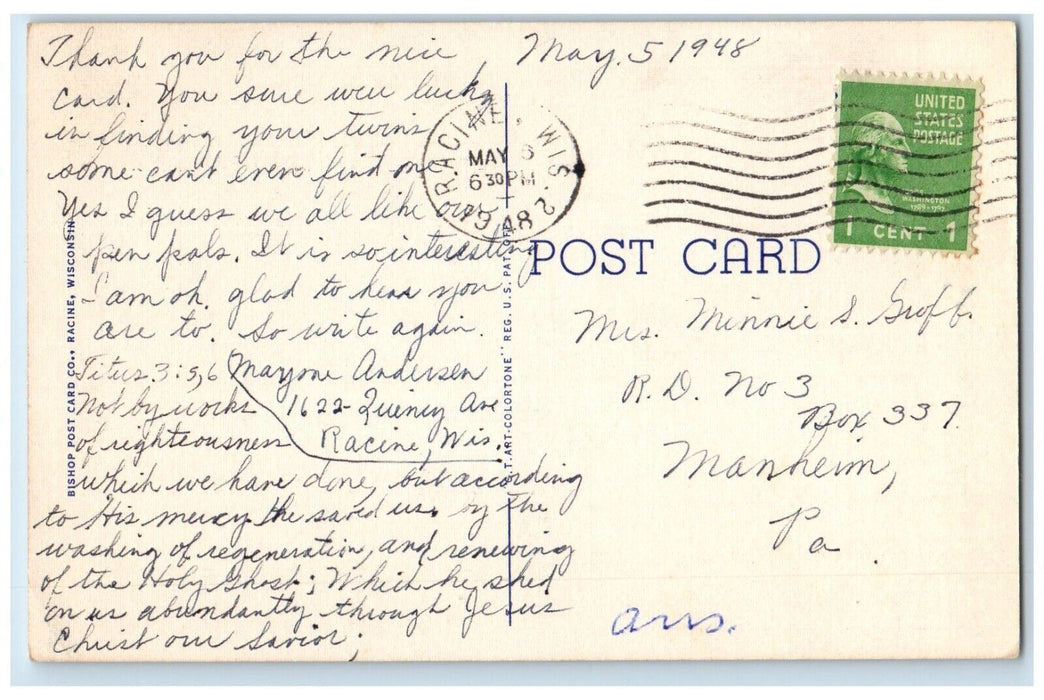 Thank you for the nice
card. You sure were lucky
in finding your twins
some can't even find one
Yes I guess we all like our
pen pals. It is so interesting
I am oh. glad to hear you
are to. So write again.
Titus 3:5,6
Not by works
of righteousness
which we have done, but according
to His mercy he saved us, by the
washing of regeneration, and renewing
of the Holy Ghost; Which he shed
on us abundantly through Jesus
Christ our Savior;
Andersen
1622- Quincy Ave
Racine, Wis.
BISHOP POST CARD CO., RACINE, WISCONSIN
T. ART-COLORTONE" REG. U.S. PAT. OFF.
May. 5 1948
RACINE, WIS. 2
MAY 6
6 30 PM
1948
UNITED
STATES
POSTAGE
WASHINGTON
1789-1797
1 CENT 1
POST CARD
Mrs. Minnie S. Groff.
R.D. No 3
Box 337.
Manheim,
Pa.
ans.